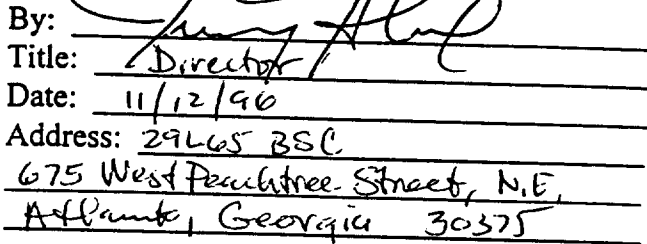 By:
Title: Director
Date: 11/12/96
Address: 29L65 BSC
675 West Peachtree Street, N.E,
Atlanta, Georgia 30375